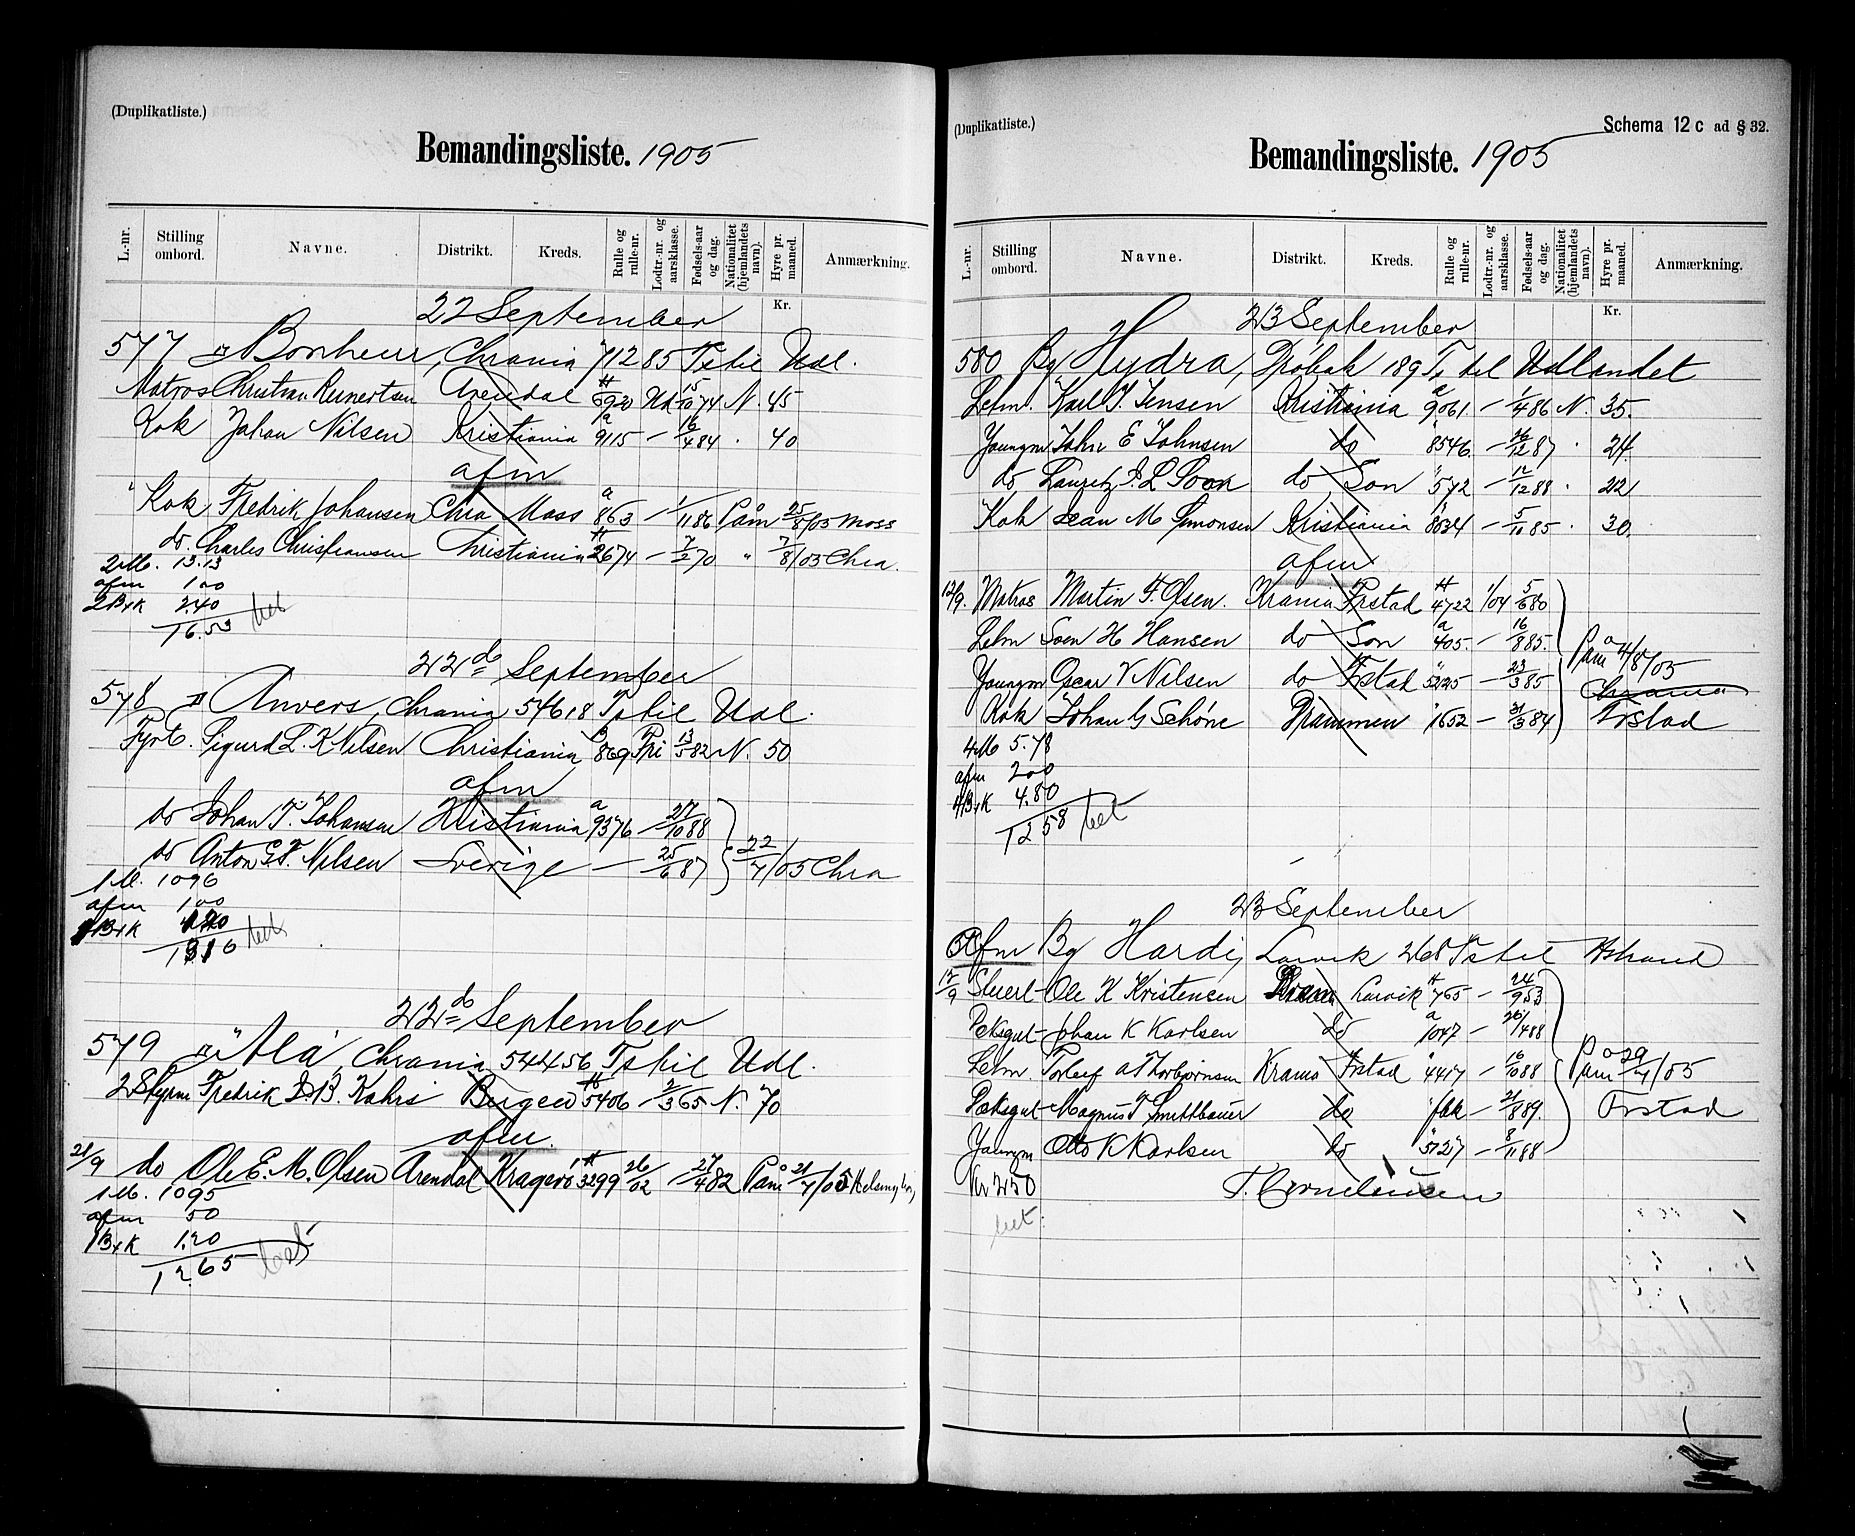 (Duplikatliste.)
Bemandingsliste. 1905
L.-nr. Stilling ombord. Navne. Distrikt. Kreds. Rulle og rulle-nr. Lodtr.-nr. og aarsklasse. Fødsels-aar og dag. Nationalitet (hjemlandets navn). Hyre pr. maaned. Anmærkning.
Kr.
22 September
577 Bonheur, Chrania 71285 Ts til Udl.
Matros Christian Reinertsen Arendal 6920 15/10 74 N. 45
Kok Johan Nilsen Kristiania a 9115 – 16/4 84 . 40
afm
" Kok Fredrik Johansen Chra Moss a 863 – 1/11 86 Påm 25/8/05 Moss
do. Charles Christiansen Christiania 2674 – 7/2 70 " 7/8/05 Chra.
2M. 13.13
afm 1.00
2B+K 2.40
16.53 bet
22 do September
578 Anvers, Chrania 54618 Ts til Udl.
Fyrb. Sigurd L. K Nilsen Christiania 869 Fri 13/5 82 N. 50
afm
do Johan F. Johansen Kristiania a 9376 – 27/10 88
do Anton G.F. Nilsen Sverige – 25/6 87 22/7/05 Chra
1M. 1096
afm 1.00
1B+K 1.20
1316 bet
22 do September
579 "Ala", Chrania 54456 Ts til Udl.
2 Styrm Fredrik D.B. Kahrs Bergen 5406 – 2/3 65 N. 70
afm.
21/9 do Ole E. M. Olsen Arendal Kragerö 3299 26/02 – 27/4 82 Påm 21/7/05 Helsingborg
1M. 1095
afm 50
1B+K 1.20
12.65 bet
(Duplikatliste.) Schema 12 c ad § 32.
Bemandingsliste. 1905
L.-nr. Stilling ombord. Navne. Distrikt. Kreds. Rulle og rulle-nr. Lodtr.-nr. og aarsklasse. Fødsels-aar og dag. Nationalitet (hjemlandets navn). Hyre pr. maaned. Anmærkning.
Kr.
23 September
580 Bg Hydra, Drøbak 189 Ts til Udlandet
Letm. Karl J. Jensen Kristiania a 9061 – 1/4 86 N. 35.
Youngm John E Johnsen do " 8546 – 26/12 87 . 24.
do Lauritz I. L. Sook do Son " 572 – 12/12 88 . 22
Kok Sean M Simonsen Kristiania " 8034 – 5/11 85 . 30.
afm
12/9. Matros Martin F. Olsen. Krania Frstad 4722 1/04 5/6 80
Letm Soen H Hansen do Son a 405. – 16/8 85.
Youngm Oscar V Nilsen do Frstad " 5225 – 23/3 85 Påm 4/8/05 Chrania
Kok Johan G Schöne Drammen " 1652 – 31/3 84 Frstad
4M 5.78
afm 2.00
4B+K 4.80
12 58 bet
23 September
Afm Bg Hardi, Larvik 268 Ts til Astrand
12/9 Stuert Ole K Kristensen Dram Larvik 765 – 24/9 53
Dæksgut Johan K Karlsen do a 1047 – 26/4 88
Letm. Torleif A Thorbjørnsen Krania Frstad " 4417 – 16/10 88 Påm 29/7/05
Dæksgut Magnus T Smittbauer do " fbk – 21/8 89. Frstad
Youngm Otto K Karlsen do " 5127 – 8/11 88
Kr 2.50 T. Corneliussen
bet.